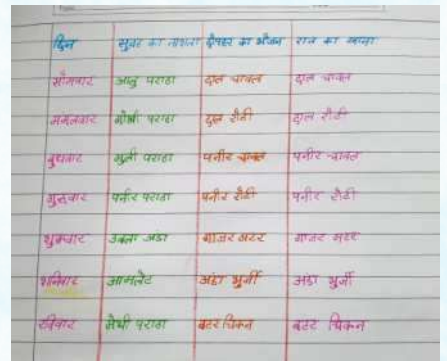 दिन सुबह का नाश्ता दोपहर का भोजन रात का खाना
सोमवार आलू पराठा दाल चावल दाल चावल
मंगलवार गोभी पराठा दाल रोटी दाल रोटी
बुधवार मुली पराठा पनीर चावल पनीर चावल
गुरुवार पनीर पराठा पनीर रोटी पनीर रोटी
शुक्रवार उबला अंडा गाजर मटर गाजर मटर
शनिवार आमलेट अंडा भुर्जी अंडा भुर्जी
रविवार मेथी पराठा बटर चिकन बटर चिकन